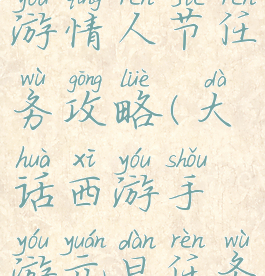 yóu qíng rén jié rèn
游情人节任
wù gōng lüè dà
务攻略(大
huà xī yóu shǒu
话西游手
yóu yuán dàn rèn wù
游元旦任务